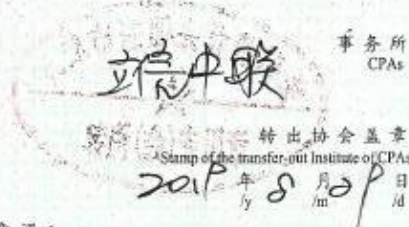 立信中联 事务所
CPAs
转出协会盖章
Stamp of the transfer-out Institute of CPAs
2019年8月29日
/y /m /d